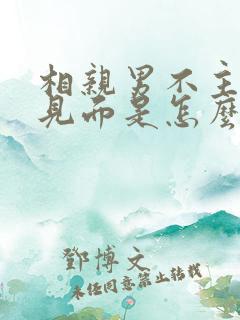 相親男不主
見而是怎麼
鄧博文
未经同意禁止转载